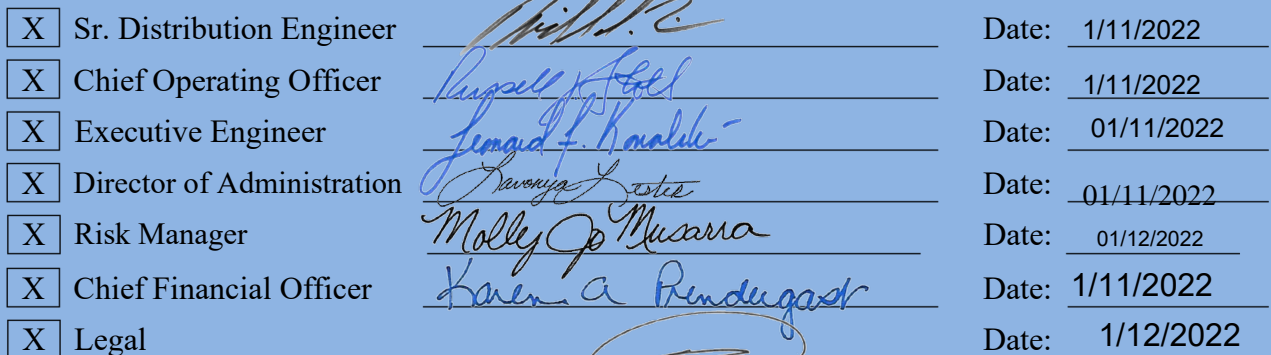 X Sr. Distribution Engineer Date: 1/11/2022
X Chief Operating Officer Date: 1/11/2022
X Executive Engineer Leonard F. Date: 01/11/2022
X Director of Administration Lavonya Lester Date: 01/11/2022
X Risk Manager Molly Jo Musarra Date: 01/12/2022
X Chief Financial Officer Karen A Prendergast Date: 1/11/2022
X Legal Date: 1/12/2022